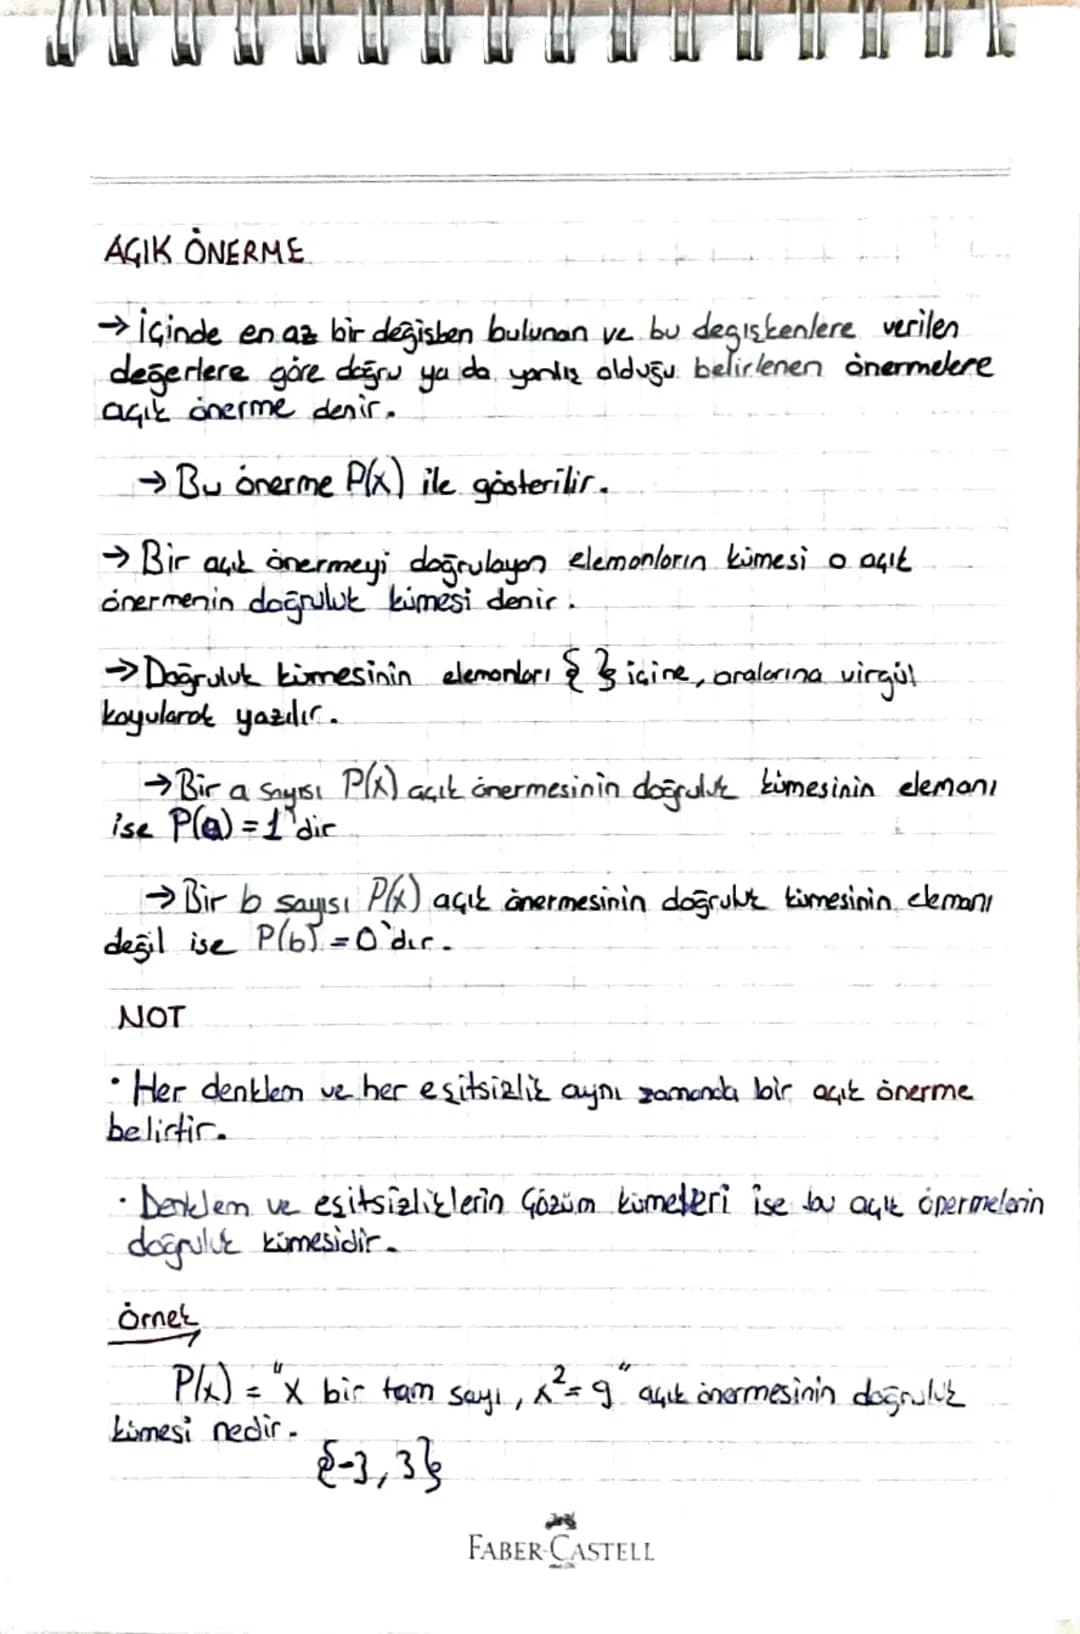 AÇIK ÖNERME
→ İçinde en az bir değişken bulunan ve bu değişkenlere verilen
değerlere göre doğru ya da yanlış olduğu belirlenen önermelere
açık önerme denir.
→ Bu önerme P(x) ile gösterilir.
→ Bir açık önermeyi doğrulayan elemanların kümesi o açık
önermenin doğruluk kümesi denir.
→ Doğruluk kümesinin elemanları { } içine, aralarına virgül
koyularak yazılır.
→ Bir a sayısı P(x) açık önermesinin doğruluk kümesinin elemanı
ise P(a) = 1'dir
→ Bir b sayısı P(x) açık önermesinin doğruluk kümesinin elemanı
değil ise P(b) = 0'dır.
NOT
• Her denklem ve her eşitsizlik aynı zamanda bir açık önerme
belirtir.
• Denklem ve eşitsizliklerin çözüm kümeleri ise bu açık önermelerin
doğruluk kümesidir.
Örnek
P(x) = "x bir tam sayı, x² = 9" açık önermesinin doğruluk
kümesi nedir.
{-3, 3}
FABER-CASTELL